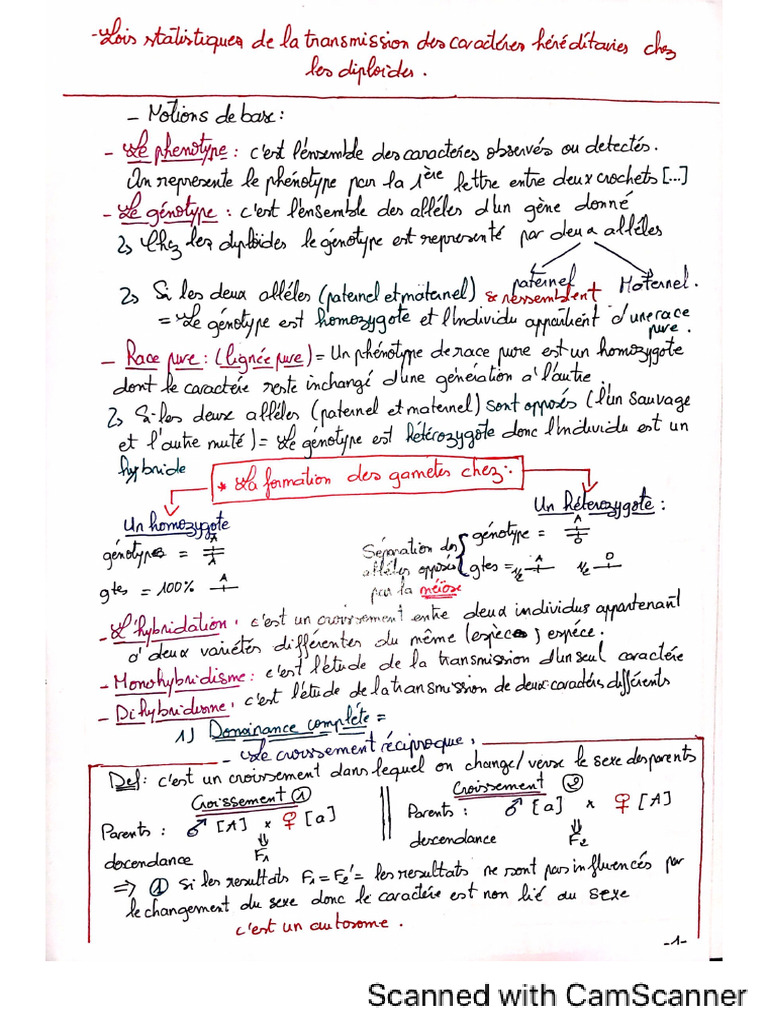 -Lois statistiques de la transmission des caractères héréditaries chez
les diploïdes.
- Notions de base :
- Le phenotype : c'est l'énsemble des caracteres observés ou detectés.
On represente le phénotype par la 1ère lettre entre deux crochets [...]
- Le génotype : c'est l'ensemble des alléles d'un gène donné
2) Chez les dyploïdes le génotype est representé par deux alléles
paternel Maternel.
2) Si les deux alléles (paternel et maternel) se ressemblent
= Le génotype est homozygote et l'individu appartient d'une race
pure.
- Race pure : (lignée pure) = Un phénotype de race pure est un homozygote
dont le caractére reste inchangé d'une génération a l'autre.
2) Si les deux alléles (paternel et maternel) sont opposés (l'un Sauvage
et l'autre muté) = Le génotype est hétérozygote donc l'individu est un
hybride
* La formation des gametes chez :
Un homozygote
génotype = A/A
gtes = 100% A
Un héterozygote :
Séparation des
alléles opposés
par la méiose
génotype = A/o
gtes = 1/2 A 1/2 o
- L'hybridation, c'est un croissement entre deux individus appartenant
a' deux variétés différentes du même (espèce) espéce.
- Monohybridisme : c'est l'étude de la transmission d'un seul caractére
- Dihybridisme, c'est l'étude de la transmission de deux caractérs différents
1) Dominance complète =
- Le croissement réciproque,
Def : c'est un croissement dans lequel on change/verse le sexe des parents
Croissement ①
Parents : ♂ [A] x ♀ [a]
⇓
descendance F1
Croissement ②
Parents : ♂ [a] x ♀ [A]
⇓
descendance F2
⇒ ① si les resultats F1 = F2' = les resultats ne sont pas influencés par
le changement du sexe donc le caractére est non lié au sexe
c'est un autosome.
-1-
Scanned with CamScanner